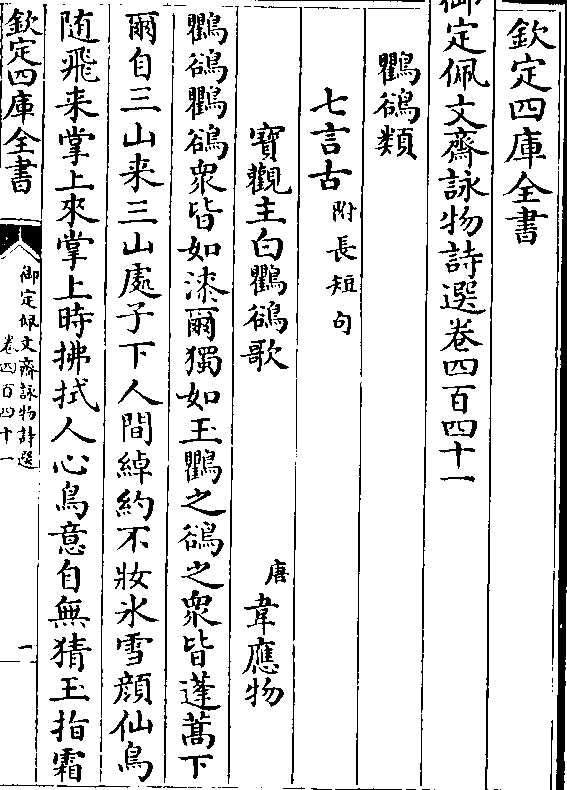 欽定四庫全書
御定佩文齋詠物詩選卷四百四十一
鸜鵒類
七言古附長短句
寶觀主白鸜鵒歌
唐韋應物
鸜鵒鸜鵒衆皆如漆爾獨如玉鸜之鵒之衆皆蓬蒿下
爾自三山来三山處子下人間綽約不妝氷雪顔仙鳥
随飛来掌上來掌上時拂拭人心鳥意自無猜玉指霜
欽定四庫全書
御定佩文齋詠物詩選
卷四百四十一
一